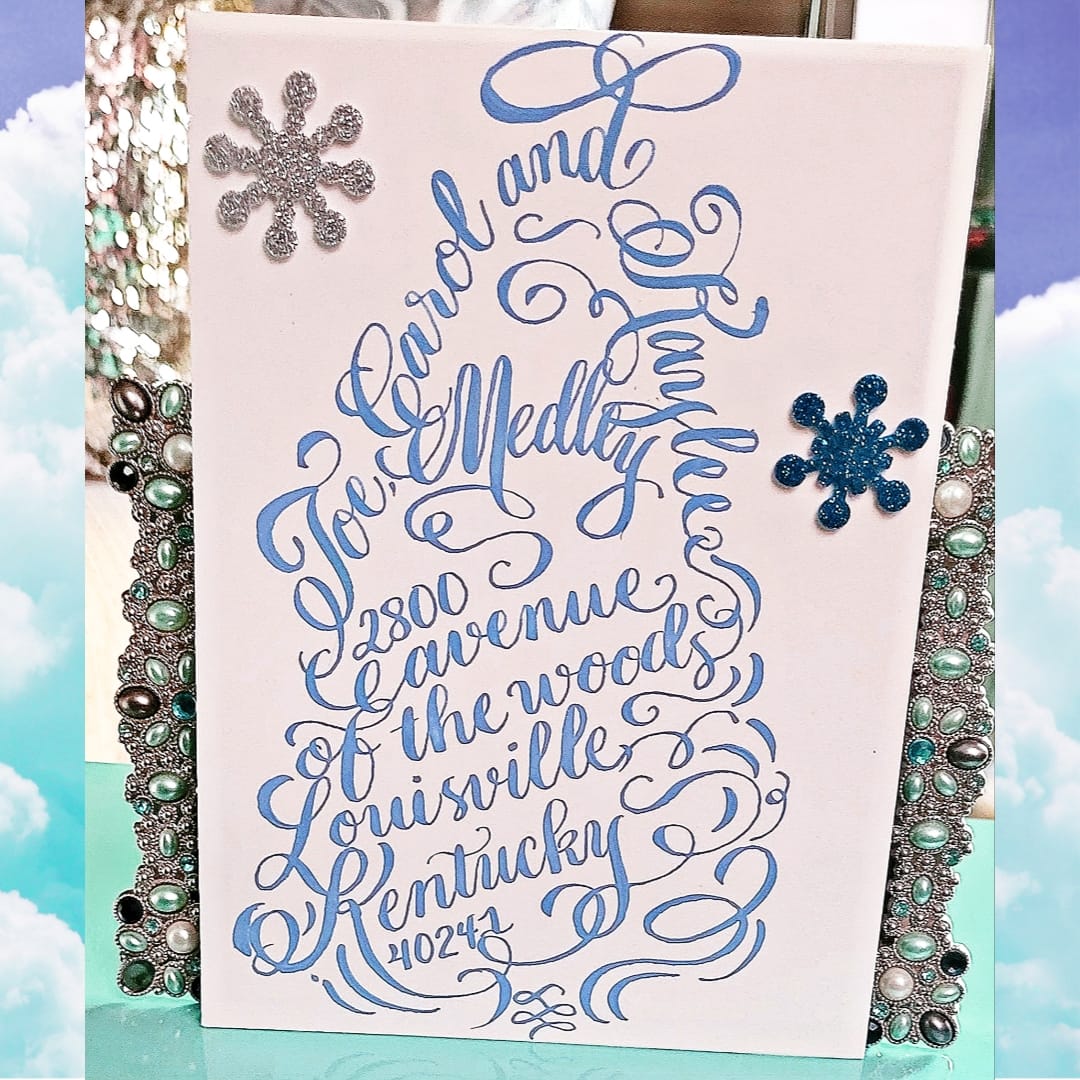 Joe, Carol and Kaylee
Medley
2800
E avenue
of the woods
Louisville,
Kentucky
40241